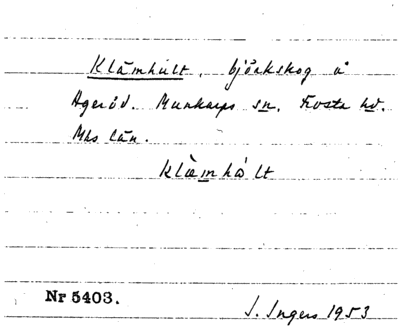 Klämhult, björkskog å
Ageröd. Munkarps sn. Frosta hd.
Mhs län.
Klämhålt
Nr 5403.
I. Ingers 1953